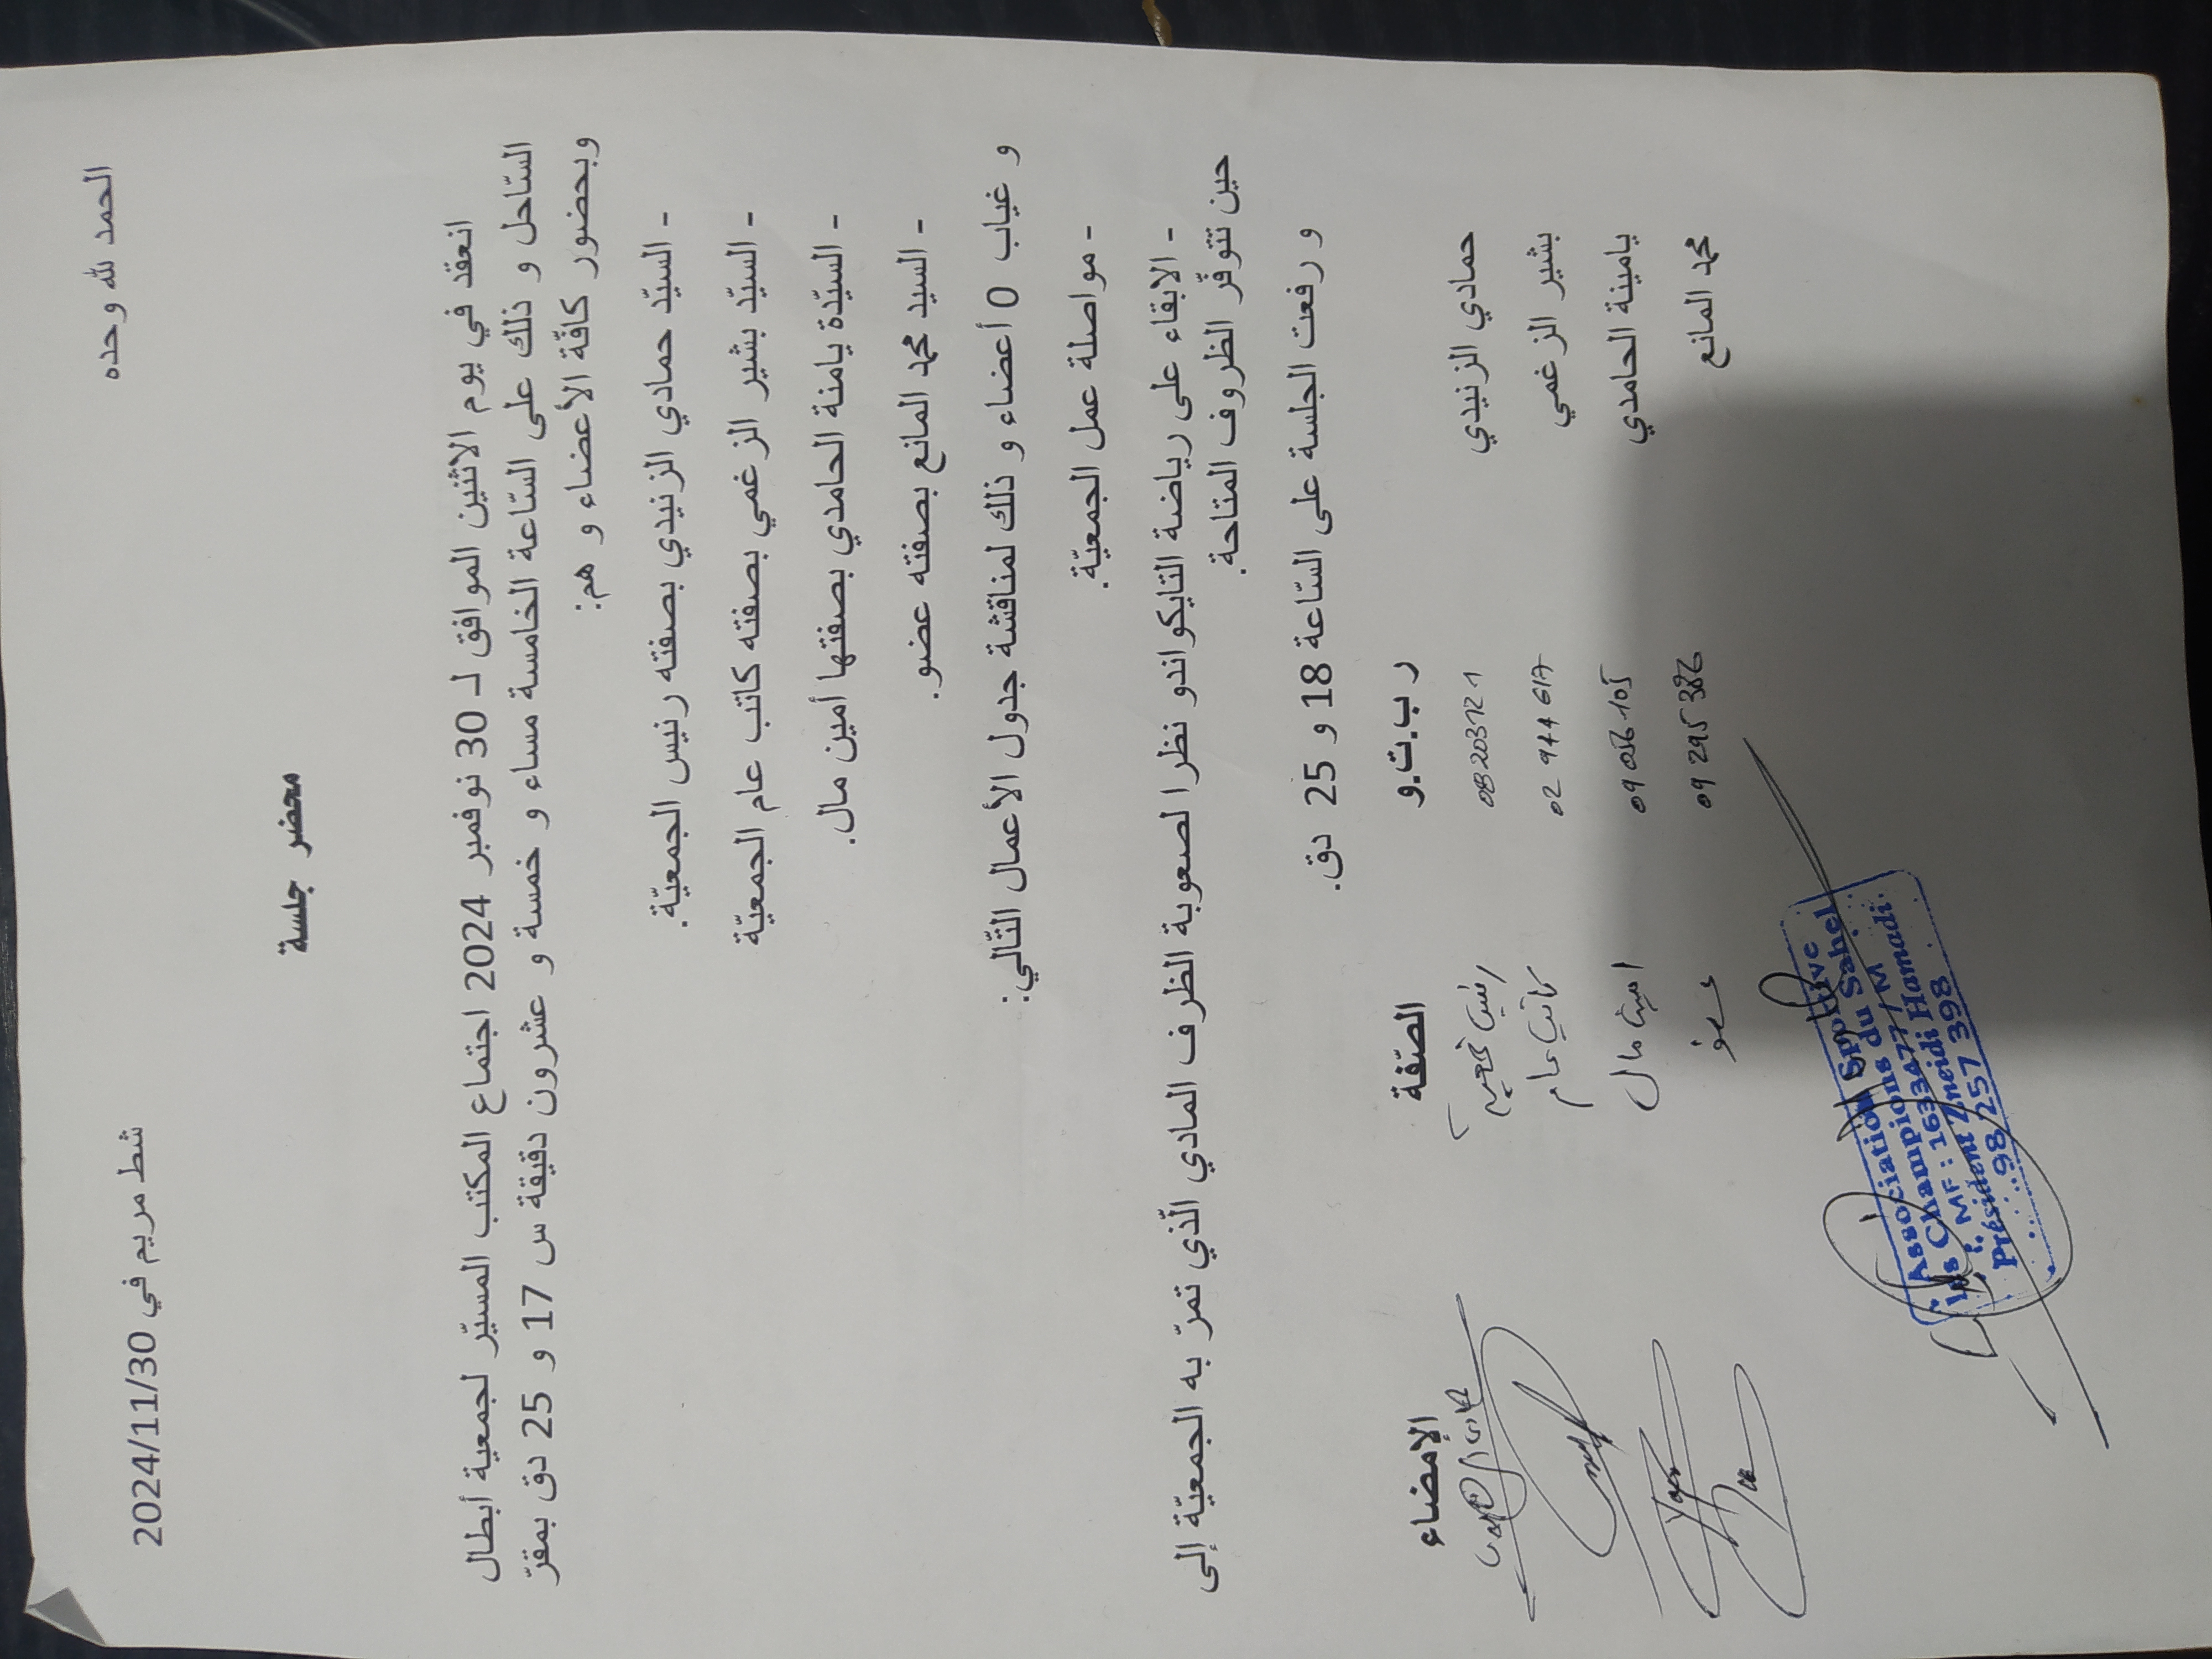 الحمد لله وحده
شط مريم في 2024/11/30
محضر جلسة
انعقد في يوم الاثنين الموافق لـ 30 نوفمبر 2024 اجتماع المكتب المسيّر لجمعية أبطال
السّاحل و ذلك على السّاعة الخامسة مساء و خمسة و عشرون دقيقة س 17 و 25 دق بمقرّ
وبحضور كافّة الأعضاء و هم:
- السيّد حمادي الزنيدي بصفته رئيس الجمعيّة.
- السيّد بشير الزغمي بصفته كاتب عام الجمعيّة
- السيّدة يامنة الحامدي بصفتها أمين مال.
- السيد محمد المانع بصفته عضو.
و غياب 0 أعضاء و ذلك لمناقشة جدول الأعمال التّالي:
- مواصلة عمل الجمعيّة.
- الابقاء على رياضة التايكواندو نظرا لصعوبة الظرف المادي الّذي تمرّ به الجمعيّة إلى
حين تتوفّر الظروف المتاحة.
و رفعت الجلسة على السّاعة 18 و 25 دق.
ر ب.ت.و الصّفة الإمضاء
حمادي الزنيدي 08203121
بشير الزغمي كاتب عام
يامينة الحامدي 09056105 امين مال
محمد المانع 09295386 عضو
Association Sportive
Les Champions du Sahel
MF : 1633477/M
Président Zneidi Hamadi
98 257 398